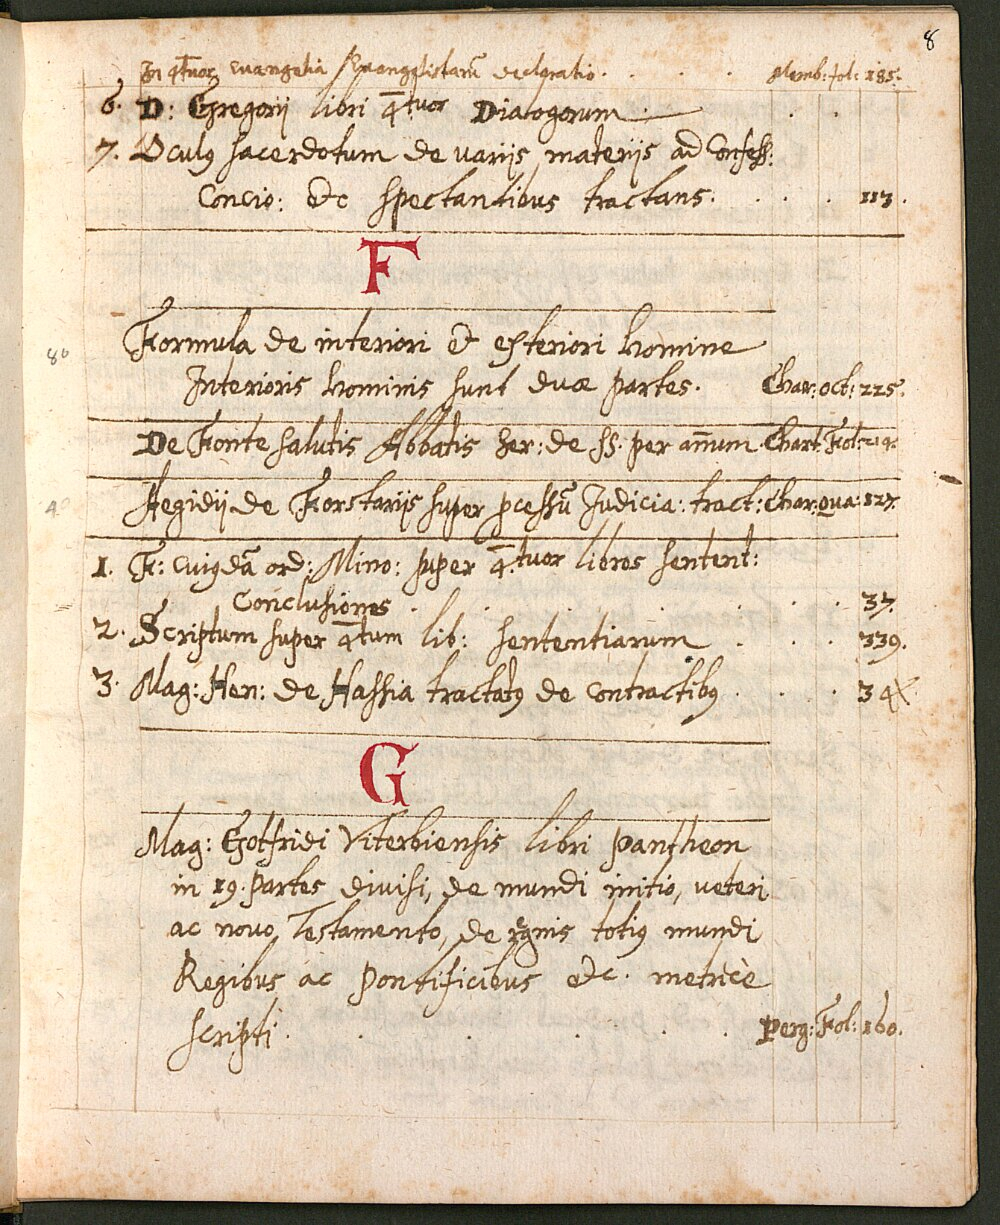 8
In 4tuor Evangelia Evangelistarũ declaratio. Memb: fol: 185.
6. D: Gregorij libri 4tuor Dialogorum
7. Oculus sacerdotum de varijs materijs ad Confess:
Concio: etc spectantibus tractans. 113.
F
Formula de interiori et exteriori homine
80
Interioris hominis sunt duæ partes. Char: oct: 225.
De Fonte salutis Abbatis ser: de SS. per añum Chart. Fol:
40
Aegidij de Forstarijs super pcessũ Judicia: tract: Char: qua: 127.
1. F: cuiusdã ord: Mino: super 4tuor libros sentent:
Conclusiones . 37.
2. Scriptum super 4tum lib: sententiarum 339.
3. Mag: Hen: de Hassia tractatus de contractibus 34
G
Mag: Gotfridi Viterbiensis libri Pantheon
in 19. partes divisi, de mundi initio, veteri
ac novo Testamento, de regnis totius mundi
Regibus ac Pontificibus etc. metricè
scripti. Perg: Fol: 160.